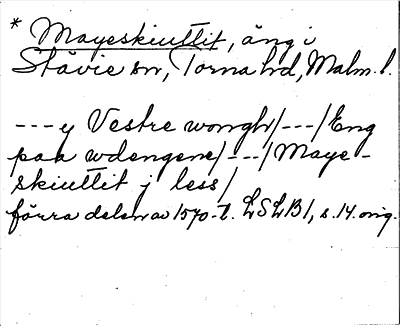 * Mayeskiuttit, äng i
Stävie sn, Torna hd, Malm. l.
---y Vestre wongh/---/Eng
paa wdengene/---/Maye-
skiuttit j less/
förra delen av 1570-t. LSLB1, s. 14. orig.